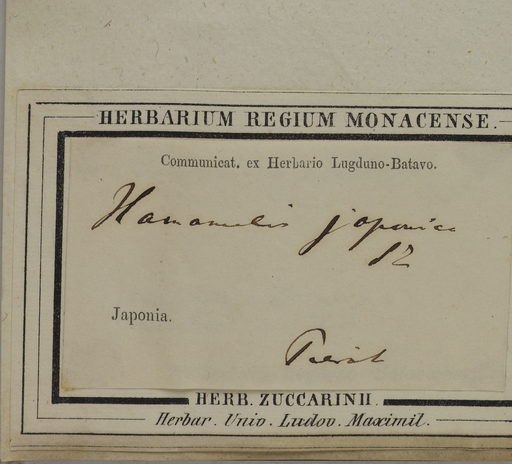 HERBARIUM REGIUM MONACENSE.
Communicat. ex Herbario Lugduno-Batavo.
Hamamelis japonica
SZ
Japonia.
HERB. ZUCCARINII.
Herbar. Univ. Ludov. Maximil.